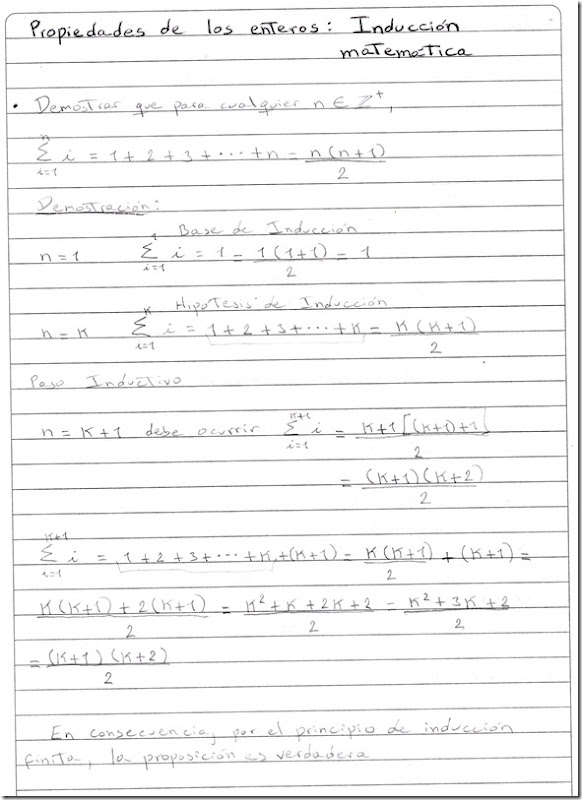 Propiedades de los enteros: Inducción
matematica
• Demostrar que para cualquier n ∈ Z⁺,
n
∑ i = 1+2+3+···+n = n(n+1)/2
i=1
Demostración:
Base de Inducción
n=1 ∑_{i=1}^{1} i = 1 = 1(1+1)/2 = 1
Hipotesis de Inducción
n=K ∑_{i=1}^{K} i = 1+2+3+···+K = K(K+1)/2
Paso Inductivo
n=K+1 debe ocurrir ∑_{i=1}^{K+1} i = K+1[(K+1)+1]/2
= (K+1)(K+2)/2
∑_{i=1}^{K+1} i = 1+2+3+···+K+(K+1) = K(K+1)/2 + (K+1) =
K(K+1)+2(K+1)/2 = K²+K+2K+2/2 = K²+3K+2/2
= (K+1)(K+2)/2
En consecuencia, por el principio de inducción
finita, la proposición es verdadera